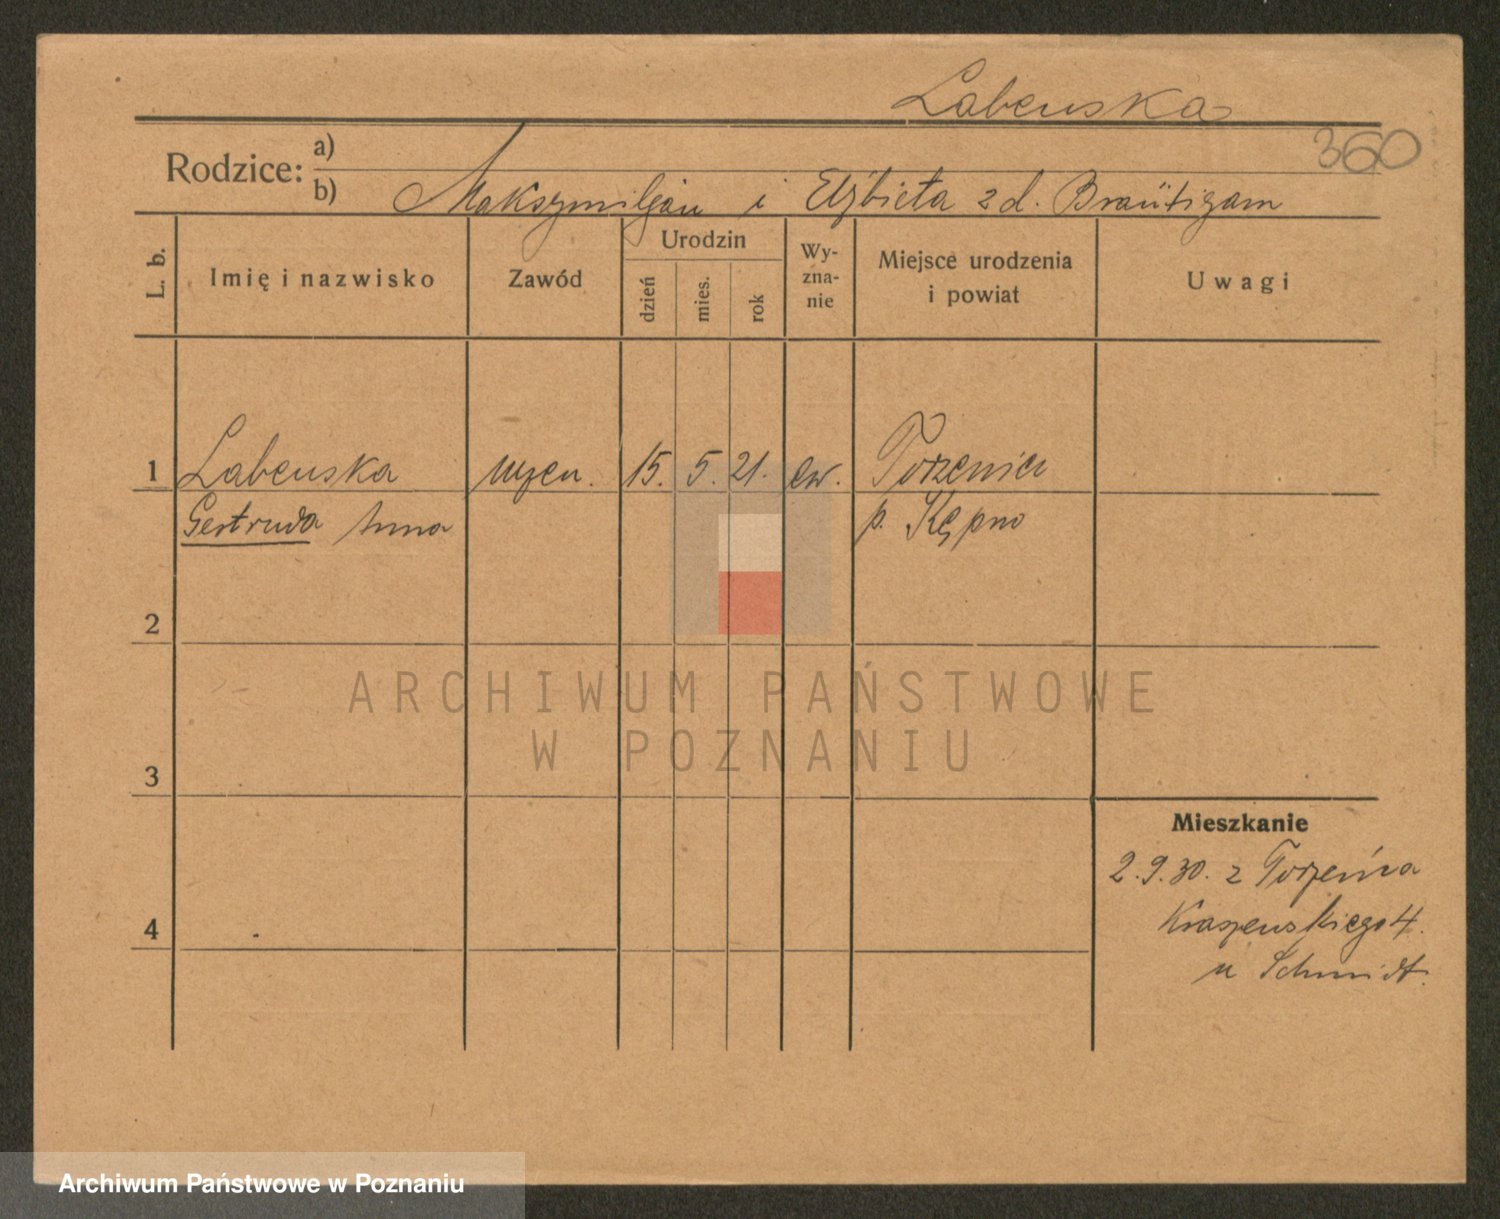 Labenska
360
Rodzice: a)
b) Maksymiljan i Elżbieta z d. Bräutigam
L. b.
Imię i nazwisko
Zawód
Urodzin
dzień
mies.
rok
Wy-
zna-
nie
Miejsce urodzenia
i powiat
Uwagi
1 Labenska uczen. 15. 5. 21. ew. Torzeniec
Gertruda Anna p. Kępno
2
3
4
Mieszkanie
2.9.30. z Torzeńca
Kraszewskiego 4.
u Schmidt.
ARCHIWUM PAŃSTWOWE
W POZNANIU
Archiwum Państwowe w Poznaniu